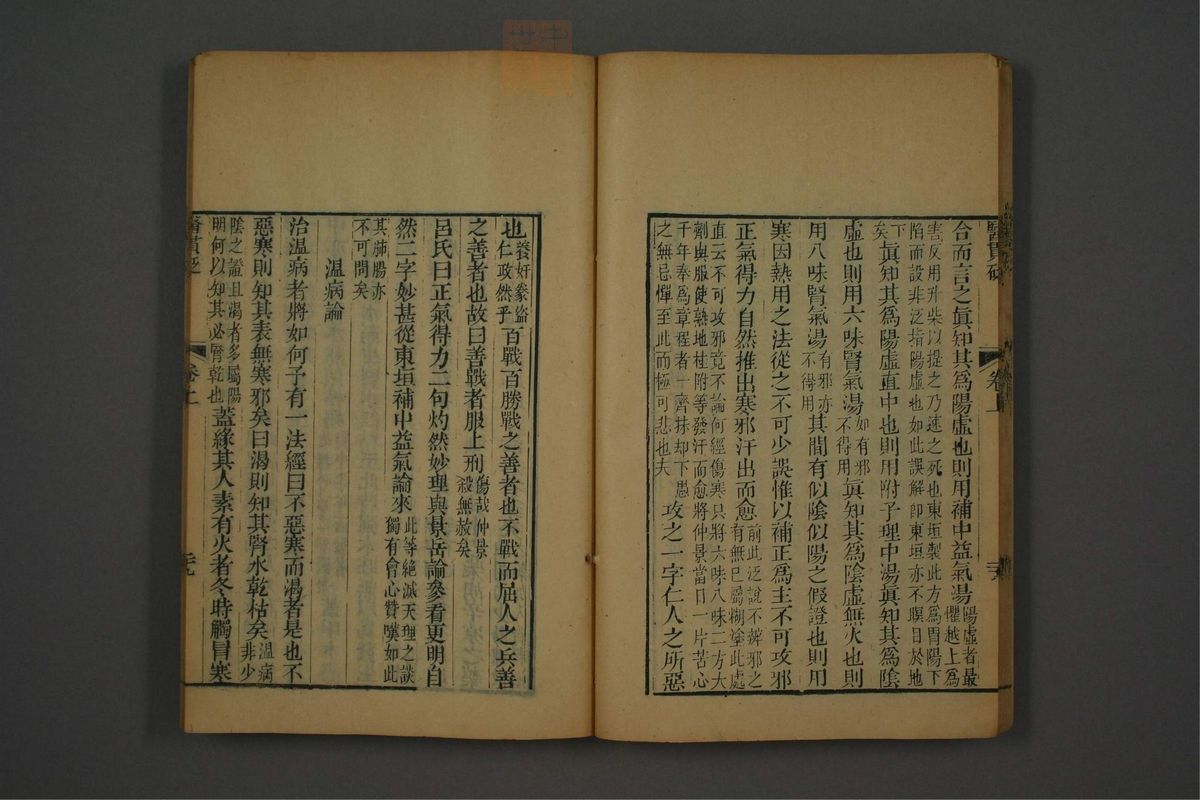 合而言之眞知其爲陽虛也則用補中益氣湯陽虛者最懼越上爲
害反用升柴以提之乃速之死也東垣製此方爲胃陽下陷而設非泛指陽虛也如此誤解卽東垣亦不瞑目於地
下矣眞知其爲陽虛直中也則用附子理中湯眞知其爲陰
虛也則用六味腎氣湯如有邪不得用眞知其爲陰虛無火也則
用八味腎氣湯有邪亦不得用其間有似陰似陽之假證也則用
寒因熱用之法從之不可少誤惟以補正爲主不可攻邪
正氣得力自然推出寒邪汗出而愈前此泛說不辨邪之有無已屬糊塗此處
直云不可攻邪竟不論何經傷寒只將六味八味二方大劑與服使熟地桂附等發汗而愈將仲景當日一片苦心
千年奉爲章程者一齊抹却下愚之無忌憚至此而極可悲也夫攻之一字仁人之所惡
醫貫砭
卷上
也養奸豢盜仁政然乎百戰百勝戰之善者也不戰而屈人之兵善
之善者也故曰善戰者服上刑傷哉仲景殺無赦矣
呂氏曰正氣得力二句灼然妙理與景岳論參看更明自
然二字妙甚從東垣補中益氣論來此等絕滅天理之談獨有會心贊嘆如此
其肺腸亦不可問矣
溫病論
治溫病者將如何予有一法經曰不惡寒而渴者是也不
惡寒則知其表無寒邪矣曰渴則知其腎水乾枯矣溫病非少
陰之證且渴者多屬陽明何以知其必腎乾也蓋緣其人素有火者冬時觸冒寒
醫貫砭
卷上